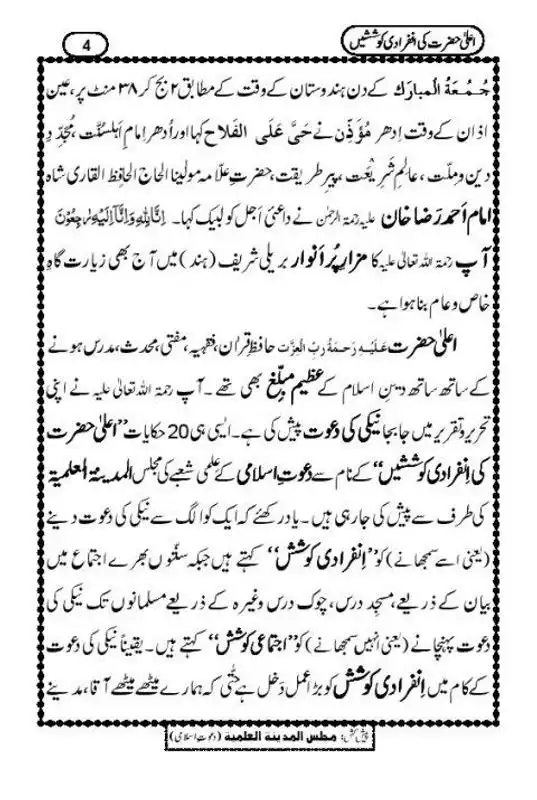 اعلیٰ حضرت کی انفرادی کوششیں
4
جُمُعَۃُ الْمبارَک کے دن ہندوستان کے وقت کے مطابق ۲ بج کر ۳۸ منٹ پر، عین
اذان کے وقت اِدھر مُؤَذِّن نے حَیَّ عَلَی الْفَلاح کہا اور اُدھر امام اَہلسنّت، مُجَدِّدِ
دین و ملّت، عالمِ شَرِیْعَت، پیرِ طریقت، حضرتِ علّامہ مولٰینا الحاج الحافِظ القاری شاہ
امام اَحمد رَضا خان علیہ رحمۃ الرحمٰن نے داعئ اَجل کو لبیک کہا۔ اِنَّا لِلّٰہِ وَاِنَّآ اِلَیْہِ رٰجِعُوْنَ
آپ رحمۃ اللہ تعالیٰ علیہ کا مزارِ پُر اَنوار بریلی شریف (ہند) میں آج بھی زیارت گاہِ
خاص و عام بنا ہوا ہے۔
اعلیٰ حضرت عَلَیْہِ رَحمَۃُ ربِّ الْعِزَّت حافظِ قراٰن، فقہیہ، مفتی، محدث، مدرس ہونے
کے ساتھ ساتھ دینِ اسلام کے عظیم مبلّغ بھی تھے۔ آپ رحمۃ اللہ تعالیٰ علیہ نے اپنی
تحریر و تقریر میں جابجا نیکی کی دعوت پیش کی ہے۔ ایسی ہی 20 حکایات ’’اعلیٰ حضرت
کی اِنفرادی کوششیں‘‘ کے نام سے دعوتِ اسلامی کے علمی شعبے کی مجلس المدینۃ العلمیۃ
کی طرف سے پیش کی جارہی ہیں۔ یاد رکھئے کہ ایک کو الگ سے نیکی کی دعوت دینے
(یعنی اسے سمجھانے) کو ’’اِنفرادی کوشش‘‘ کہتے ہیں جبکہ سنّتوں بھرے اجتماع میں
بیان کے ذریعے، مسجد درس، چوک درس وغیرہ کے ذریعے مسلمانوں تک نیکی کی
دعوت پہنچانے (یعنی انہیں سمجھانے) کو ’’اجتماعی کوشش‘‘ کہتے ہیں۔ یقیناً نیکی کی دعوت
کے کام میں اِنفرادی کوشش کو بڑا عمل دَخل ہے حتّٰی کہ ہمارے میٹھے میٹھے آقا، مدینے
پیش کش: مجلس المدینۃ العلمیۃ (دعوتِ اسلامی)